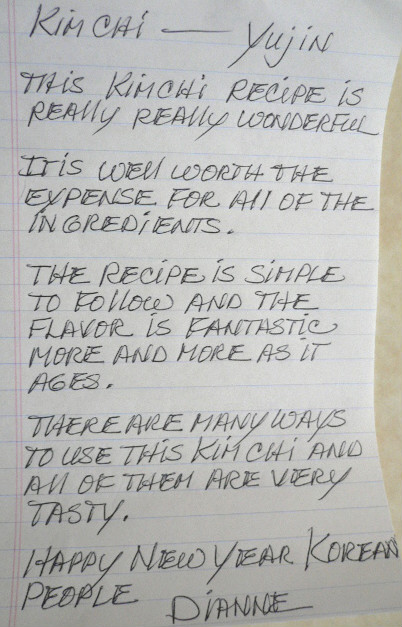 KiMCHi — YUjiN
THiS KiMCHi RECiPE iS
REAlly REAlly WONDERFUL
IT iS WEll WORTH THE
EXPENSE FOR All OF THE
INGREDiENTS.
THE RECiPE iS SiMPLE
TO FOllOW AND THE
FLAVOR iS FANTASTiC
MORE AND MORE AS iT
AGES.
THERE ARE MANY WAYS
TO USE THiS KiMCHi AND
All OF THEM ARE VERY
TASTY.
HAPPY NEW YEAR KOREAN
PEOPLE DiANNE